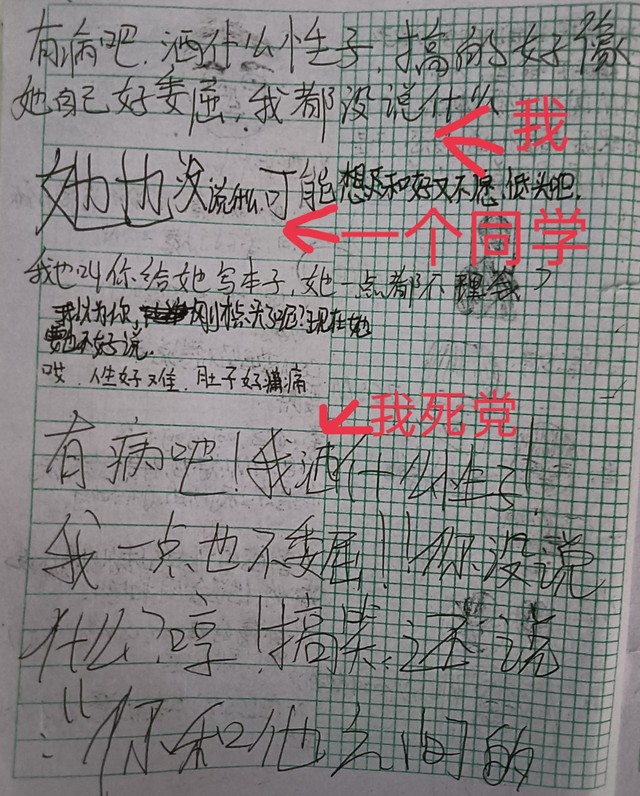 有病吧,洒什么性子,搞的好像
她自己好委屈,我都没说什么
我
她也没说什么,可能想和好又不愿低头吧.
一个同学
我也叫你给她写本子,她一点都不理会?
我以为你,刚点头了呢?现在她
也不好说.
哎,人生好难,肚子好痛
我死党
有病吧!我洒什么性子!
我一点也不委屈!!你没说
什么?哼!搞笑,还说
!!你和他之间的